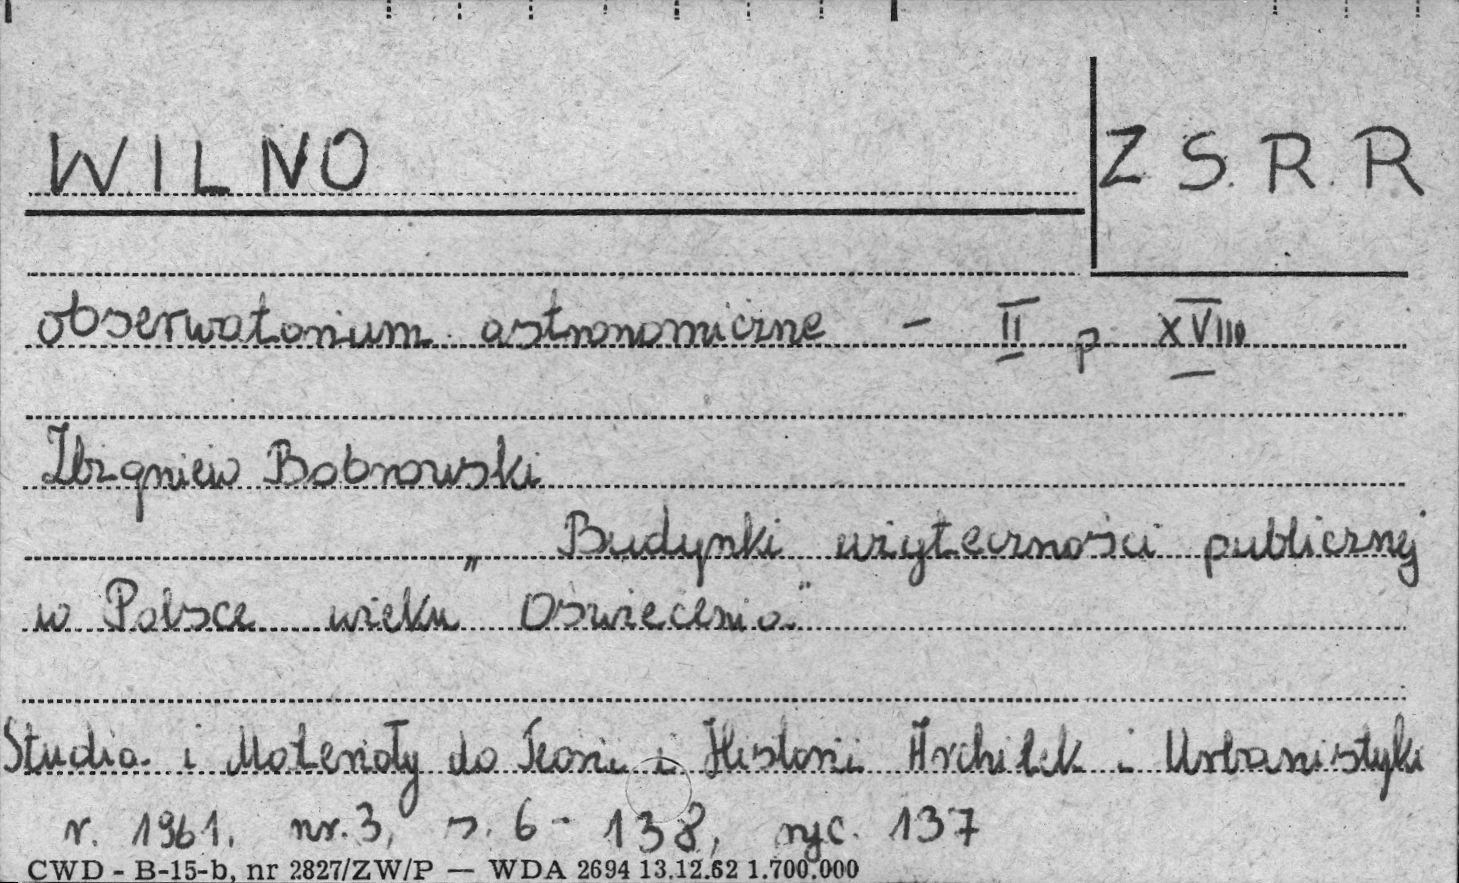 WILNO
Z S. R. R
obserwatorium astronomiczne - II p XVIII
Zbigniew Bobrowski
„ Budynki użyteczności publicznej
w Polsce wieku Oświecenia"
Studia i Materiały do Teorii i Historii Architek i Urbanistyki
r. 1961, nr. 3, s. 6 - 138, ryc. 137
CWD - B-15-b, nr 2827/ZW/P — WDA 2694 13.12.62 1.700.000